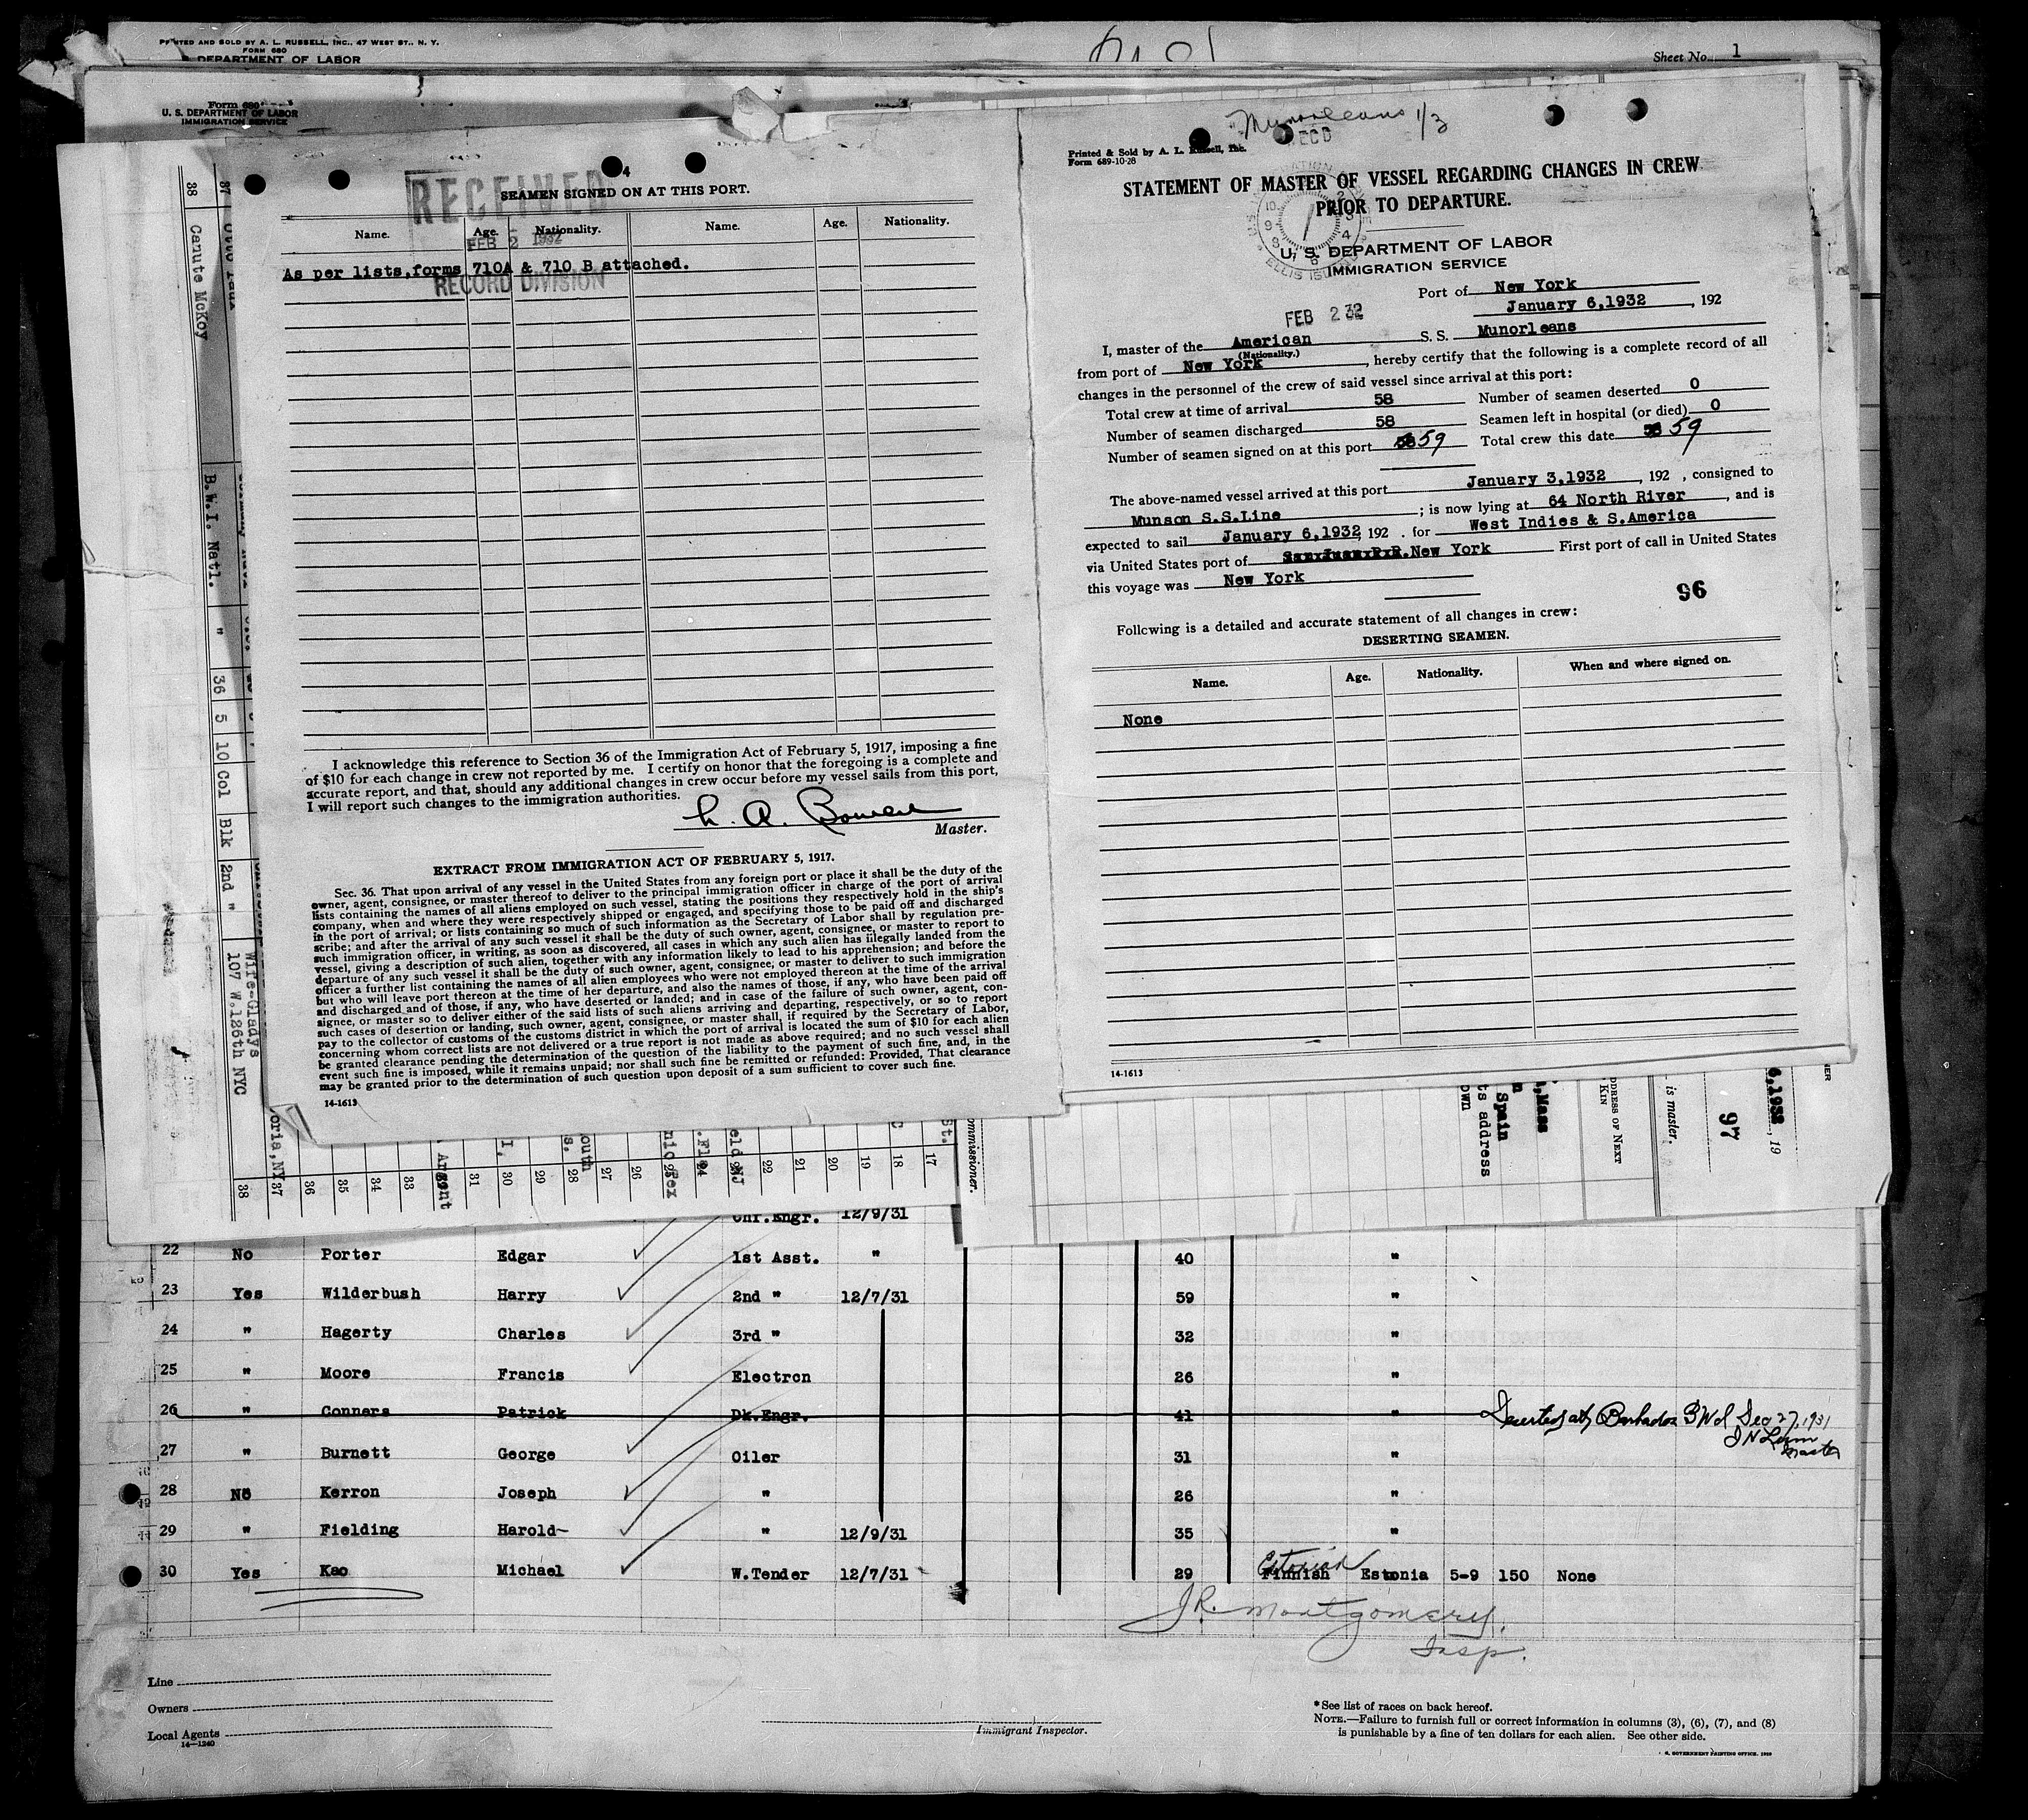 PRINTED AND SOLD BY A. L. RUSSELL, INC., 47 WEST ST., N. Y.
FORM 680
DEPARTMENT OF LABOR
Sheet No. 1
Form 680
U. S. DEPARTMENT OF LABOR
IMMIGRATION SERVICE
4
RECEIVED
FEB 2 1932
RECORD DIVISION
SEAMEN SIGNED ON AT THIS PORT.
Name. Age. Nationality. Name. Age. Nationality.
As per lists,forms 710A & 710 B attached.
I acknowledge this reference to Section 36 of the Immigration Act of February 5, 1917, imposing a fine
of $10 for each change in crew not reported by me. I certify on honor that the foregoing is a complete and
accurate report, and that, should any additional changes in crew occur before my vessel sails from this port,
I will report such changes to the immigration authorities.
Master.
EXTRACT FROM IMMIGRATION ACT OF FEBRUARY 5, 1917.
Sec. 36. That upon arrival of any vessel in the United States from any foreign port or place it shall be the duty of the
owner, agent, consignee, or master thereof to deliver to the principal immigration officer in charge of the port of arrival
lists containing the names of all aliens employed on such vessel, stating the positions they respectively hold in the ship's
company, when and where they were respectively shipped or engaged, and specifying those to be paid off and discharged
in the port of arrival; or lists containing so much of such information as the Secretary of Labor shall by regulation pre-
scribe; and after the arrival of any such vessel it shall be the duty of such owner, agent, consignee, or master to report to
such immigration officer, in writing, as soon as discovered, all cases in which any such alien has illegally landed from the
vessel, giving a description of such alien, together with any information likely to lead to his apprehension; and before the
departure of any such vessel it shall be the duty of such owner, agent, consignee, or master to deliver to such immigration
officer a further list containing the names of all alien employees who were not employed thereon at the time of the arrival
but who will leave port thereon at the time of her departure, and also the names of those, if any, who have been paid off
and discharged and of those, if any, who have deserted or landed; and in case of the failure of such owner, agent, con-
signee, or master so to deliver either of the said lists of such aliens arriving and departing, respectively, or so to report
such cases of desertion or landing, such owner, agent, consignee, or master shall, if required by the Secretary of Labor,
pay to the collector of customs of the customs district in which the port of arrival is located the sum of $10 for each alien
concerning whom correct lists are not delivered or a true report is not made as above required; and no such vessel shall
be granted clearance pending the determination of the question of the liability to the payment of such fine, and, in the
event such fine is imposed, while it remains unpaid; nor shall such fine be remitted or refunded: Provided, That clearance
may be granted prior to the determination of such question upon deposit of a sum sufficient to cover such fine.
14-1613
Munorleans 1/3
Printed & Sold by A. L. Russell, Inc.
Form 689-10-28
STATEMENT OF MASTER OF VESSEL REGARDING CHANGES IN CREW
PRIOR TO DEPARTURE.
U. S. DEPARTMENT OF LABOR
IMMIGRATION SERVICE
Port of New York
January 6,1932, 192
FEB 2 32
I, master of the American S. S. Munorleans
(Nationality.)
from port of New York, hereby certify that the following is a complete record of all
changes in the personnel of the crew of said vessel since arrival at this port:
Total crew at time of arrival 58 Number of seamen deserted 0
Number of seamen discharged 58 Seamen left in hospital (or died) 0
Number of seamen signed on at this port 59 Total crew this date 59
The above-named vessel arrived at this port January 3,1932, 192 , consigned to
Munson S.S.Line; is now lying at 64 North River, and is
expected to sail January 6,1932, 192 . for West Indies & S.America
via United States port of New York First port of call in United States
this voyage was New York
96
Following is a detailed and accurate statement of all changes in crew:
DESERTING SEAMEN.
Name. Age. Nationality. When and where signed on.
None
14-1613
38 Canute McKoy B.W.I. Natl. " 36 5 10 Col Blk 2nd " 107 W.126th NYC
Wife-Gladys
38 37 36 35 34 33 31 30 29 28 27 26 22 21 20 19 18 17
Spain
ts address
own
,Mass
is master.
97
6,1932, 19
Chf.Engr. 12/9/31
22 No Porter Edgar 1st Asst. " 40 "
23 Yes Wilderbush Harry 2nd " 12/7/31 59 "
24 " Hagerty Charles 3rd " 32 "
25 " Moore Francis Electron 26 "
26 " Conners Patrick Dk.Engr. 41 " Deserted at Barbados BWI Dec 27, 1931
Master
27 " Burnett George Oiler 31 "
28 No Kerron Joseph " 26 "
29 " Fielding Harold " 12/9/31 35 "
30 Yes Kao Michael W.Tender 12/7/31 29 Finnish Estonian Estonia 5-9 150 None
J.R. Montgomery,
Insp.
Line
Owners
Local Agents
14-1240
Immigrant Inspector.
*See list of races on back hereof.
NOTE.—Failure to furnish full or correct information in columns (3), (6), (7), and (8)
is punishable by a fine of ten dollars for each alien. See other side.
GOVERNMENT PRINTING OFFICE